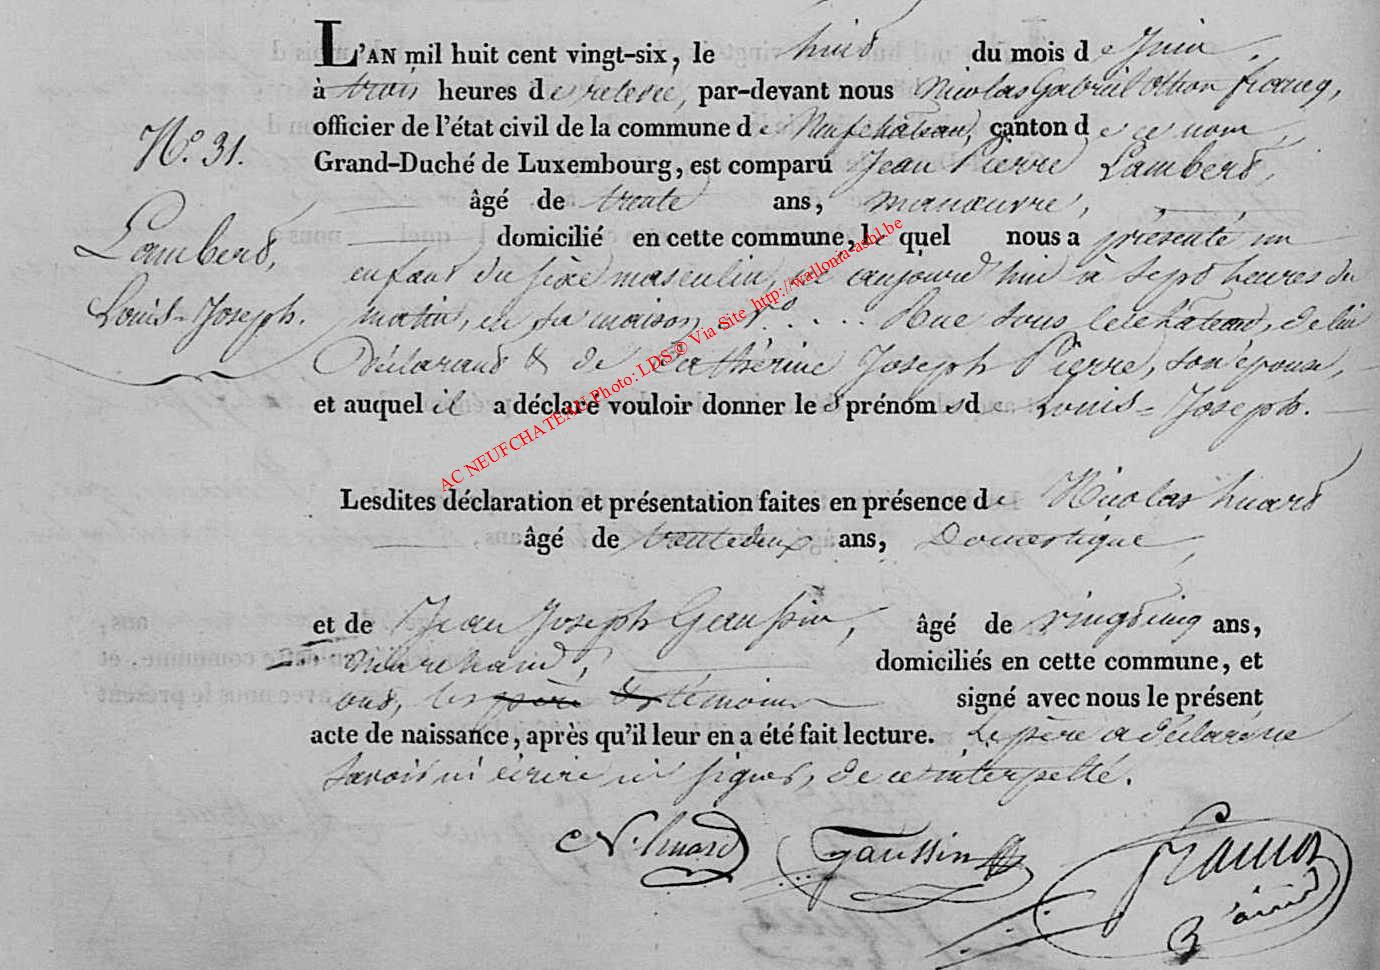 L'AN mil huit cent vingt-six, le huit du mois de Juin,
à trois heures de relevée, par-devant nous Nicolas Gabriel Othon francq,
officier de l'état civil de la commune de Neufchateau, canton de ce nom,
N.° 31.
Grand-Duché de Luxembourg, est comparu Jean Pierre Lambert,
âgé de trente ans, manœuvre,
Lambert,
domicilié en cette commune, lequel nous a présenté un
enfant du sexe masculin, né aujourd'hui à sept heures du
Louis-Joseph.
matin, en sa maison, N.° .... Rue sous le chateau, de lui
Déclarant & de Catherine Joseph Pierre, son épouse,
et auquel il a déclaré vouloir donner les prénoms de Louis-Joseph.
AC NEUFCHATEAU Photo: LDS © Via Site http://wallonia-asbl.be
Lesdites déclaration et présentation faites en présence de Nicolas huard
âgé de trentedeux ans, Domestique,
et de Jean Joseph Gaussin, âgé de vingtcinq ans,
domiciliés en cette commune, et
ont, les père et témoins signé avec nous le présent
acte de naissance, après qu'il leur en a été fait lecture. Le père a déclaré ne
savoir ni écrire ni signer, de ce interpellé.
N. huard gaussin